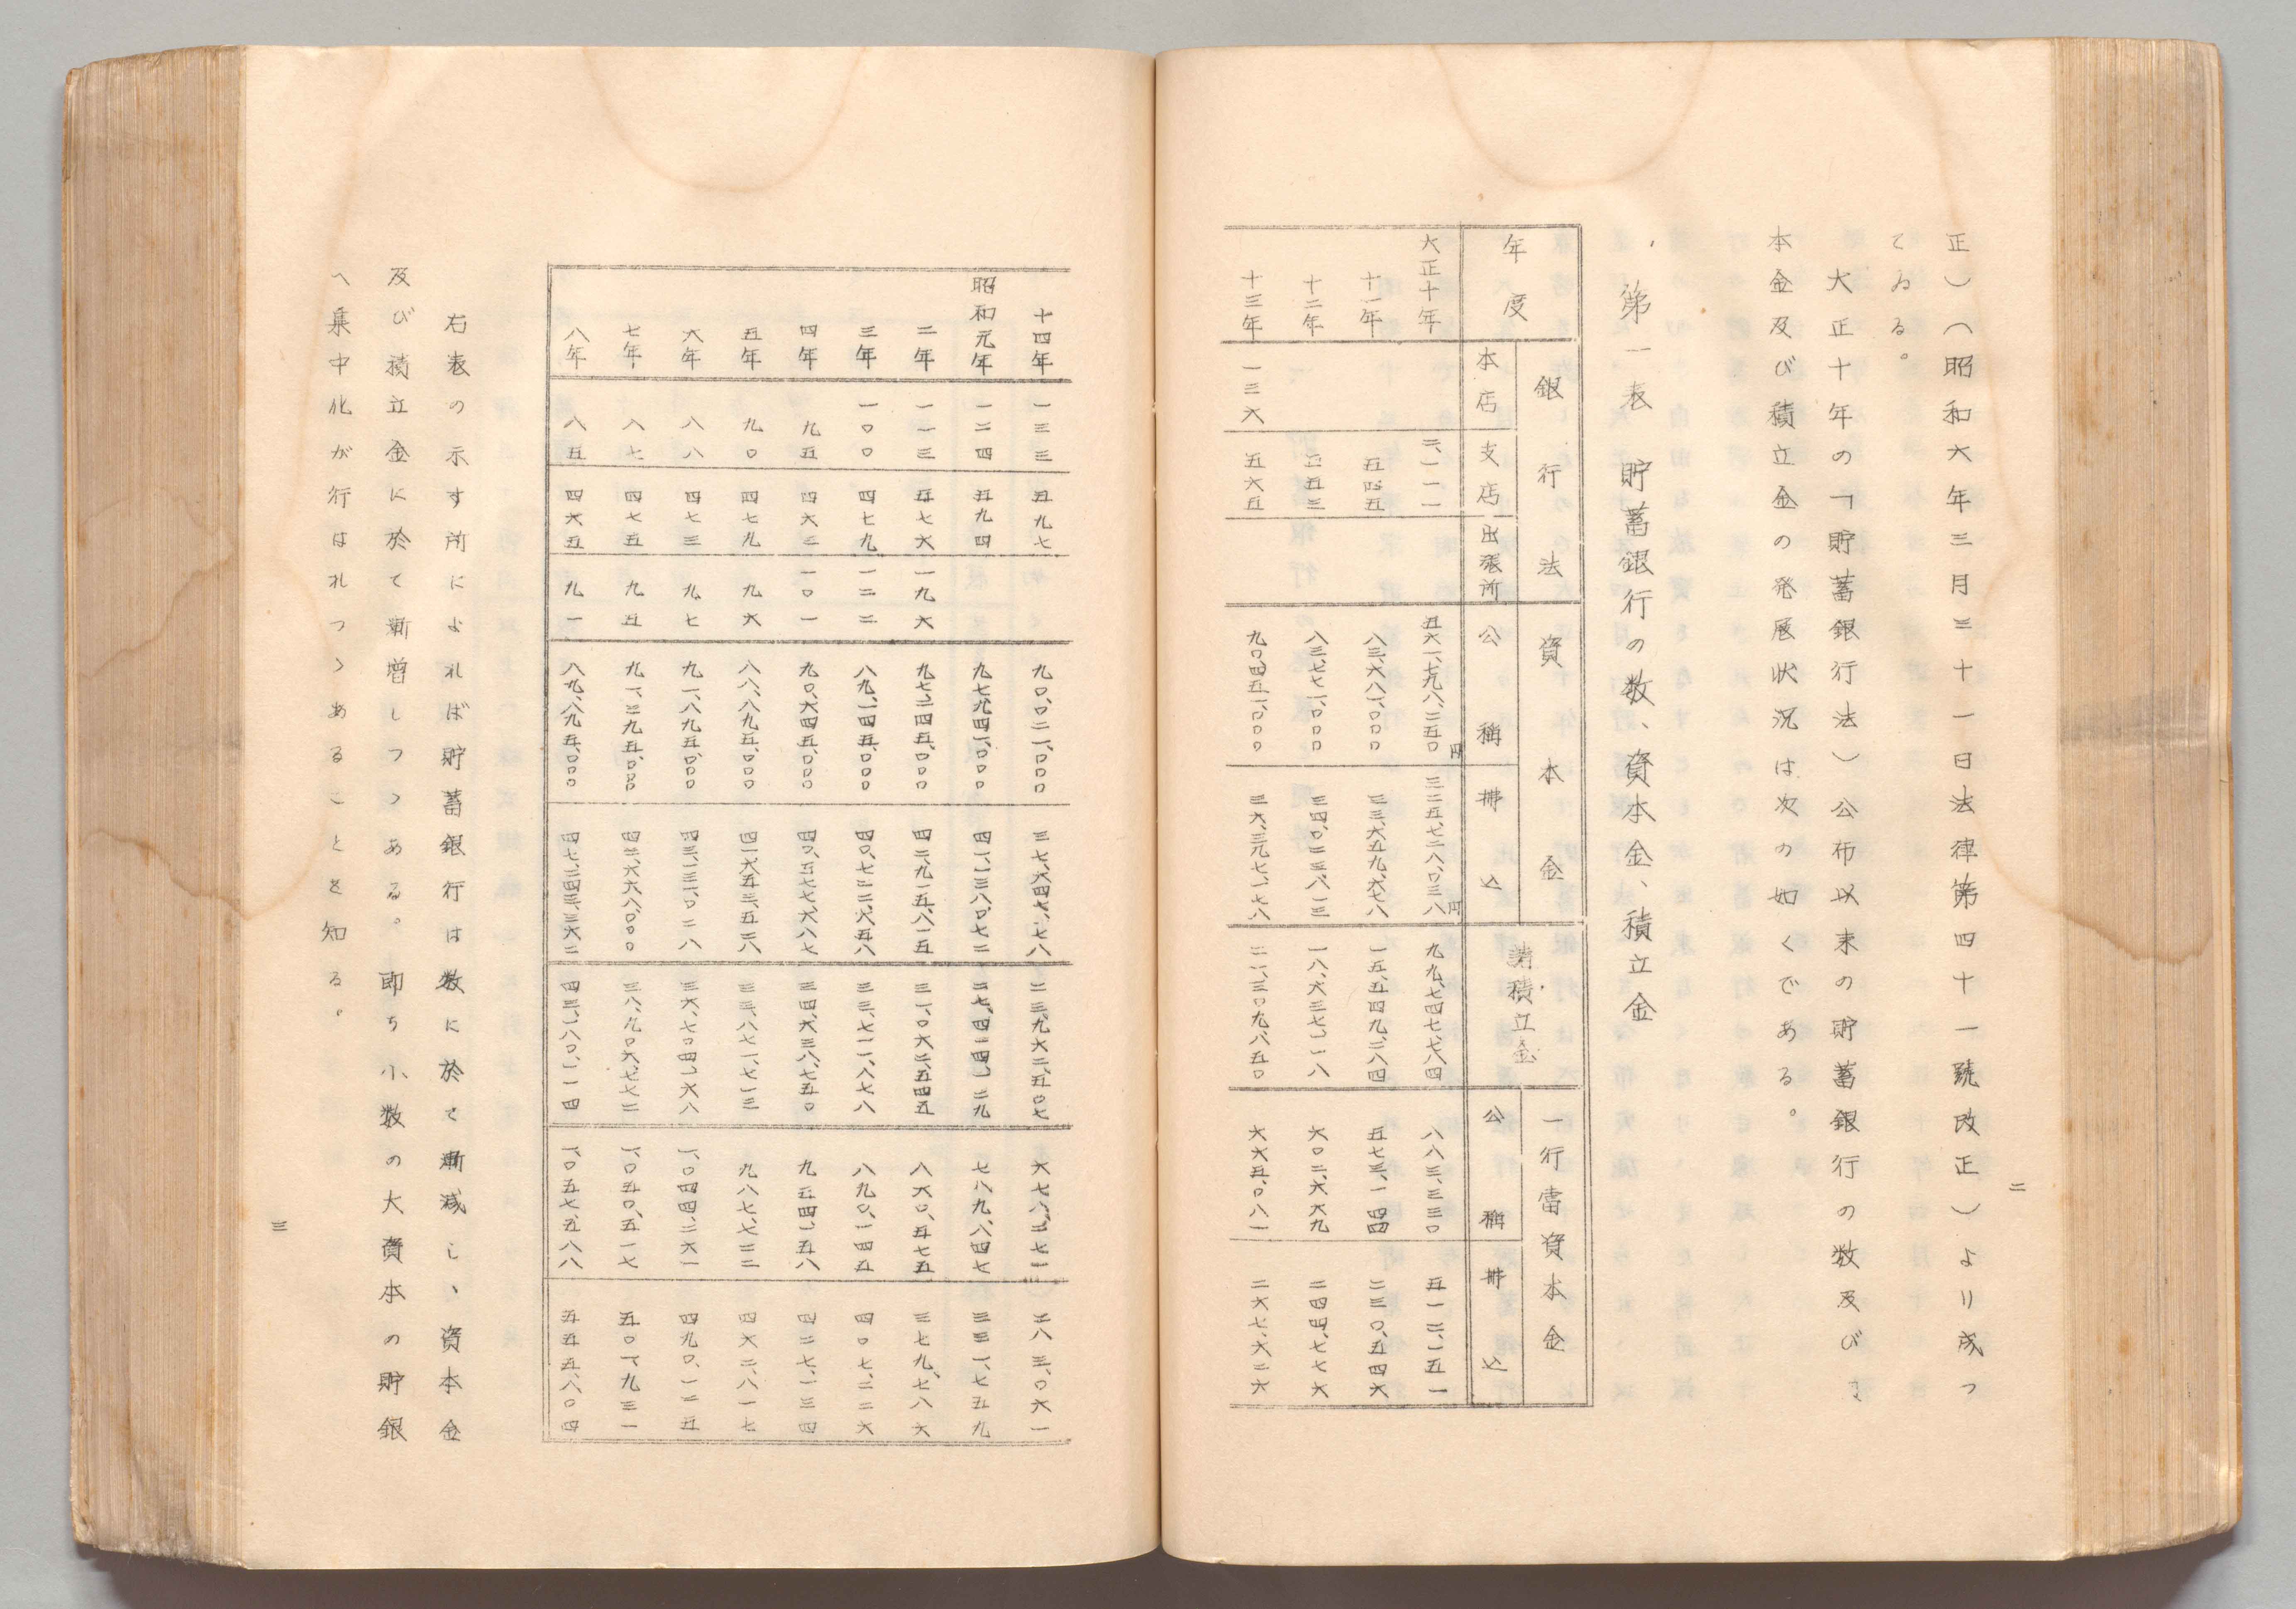 二
正)(昭和六年三月三十一日法律第四十一號改正)より成つ
てゐる。
大正十年の「貯蓄銀行法」公布以来の貯蓄銀行の数及び
本金及び積立金の発展状況は次の如くである。
第一表 貯蓄銀行の数、資本金、積立金
年度 銀行法 資本金 諸積立金 一行當資本金
本店 支店 出張所 公稱 拂込 公稱 拂込
大正十年 二、一一一 五六一、七九八、二五〇円 三二五、七二八、〇三八円 九九、七四七、七八四 八八三、三三〇 五一二、一五一
十一年 五四五 八三、六八一、〇〇〇 三三、六五九、六七八 一五、五四九、二八四 五七三、一四四 二三〇、五四六
十二年 五五三 八三、七七一、〇〇〇 三四、〇二三、八一三 一八、六三七、一一八 六〇二、六六九 二四四、七七六
十三年 一三六 五六五 九〇、四五一、〇〇〇 三六、三九七、一七八 二一、三〇九、八五〇 六六五、〇八一 二六七、六二六
十四年 一三三 五九七 九〇、〇二一、〇〇〇 三七、六四七、一七八 二三、九六二、五〇七 六七八、二七一 二八三、〇六一
昭和元年 一二四 五九四 九七、九四一、〇〇〇 四一、一三八、〇七二 二七、四二四、一二九 七八九、八四七 三三一、七五九
二年 一一三 五七六 一九六 九七、二四五、〇〇〇 四二、九一五、八一五 三一、〇六二、五四五 八六〇、五七五 三七九、七八六
三年 一〇〇 四七九 一二二 八九、一四五、〇〇〇 四〇、七二二、六五八 三三、七一一、八七八 八九〇、一四五 四〇七、二二六
四年 九五 四六二 一〇一 九〇、六四五、〇〇〇 四〇、五七七、六八七 三四、六三八、七五〇 九五四、一五八 四二七、一三四
五年 九〇 四七九 九六 八八、八九五、〇〇〇 四一、六五三、五二八 三三、八七一、七一三 九八七、七二二 四六二、八一七
六年 八八 四七三 九七 九一、八九五、〇〇〇 四三、一三一、〇二八 三六、七〇四、一六八 一、〇四四、二六一 四九〇、一二五
七年 八七 四七五 九五 九一、三九五、〇〇〇 四三、六六八、〇〇〇 三八、九〇六、七七二 一、〇五〇、五一七 五〇一、九三一
八年 八五 四六五 九一 八九、八九五、〇〇〇 四七、二四三、三六二 四三、一八〇、一一四 一、〇五七、五八八 五五五、八〇四
右表の示す所によれば貯蓄銀行は数に於て漸減し、資本金
及び積立金に於て漸増しつつある。即ち小数の大資本の貯銀
へ集中化が行はれつゝあることを知る。
三